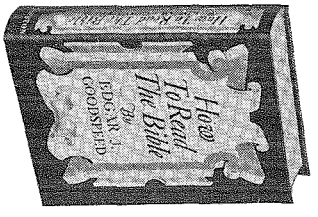 How To Read The Bible
How
To Read
The Bible
By
EDGAR J.
GOODSPEED